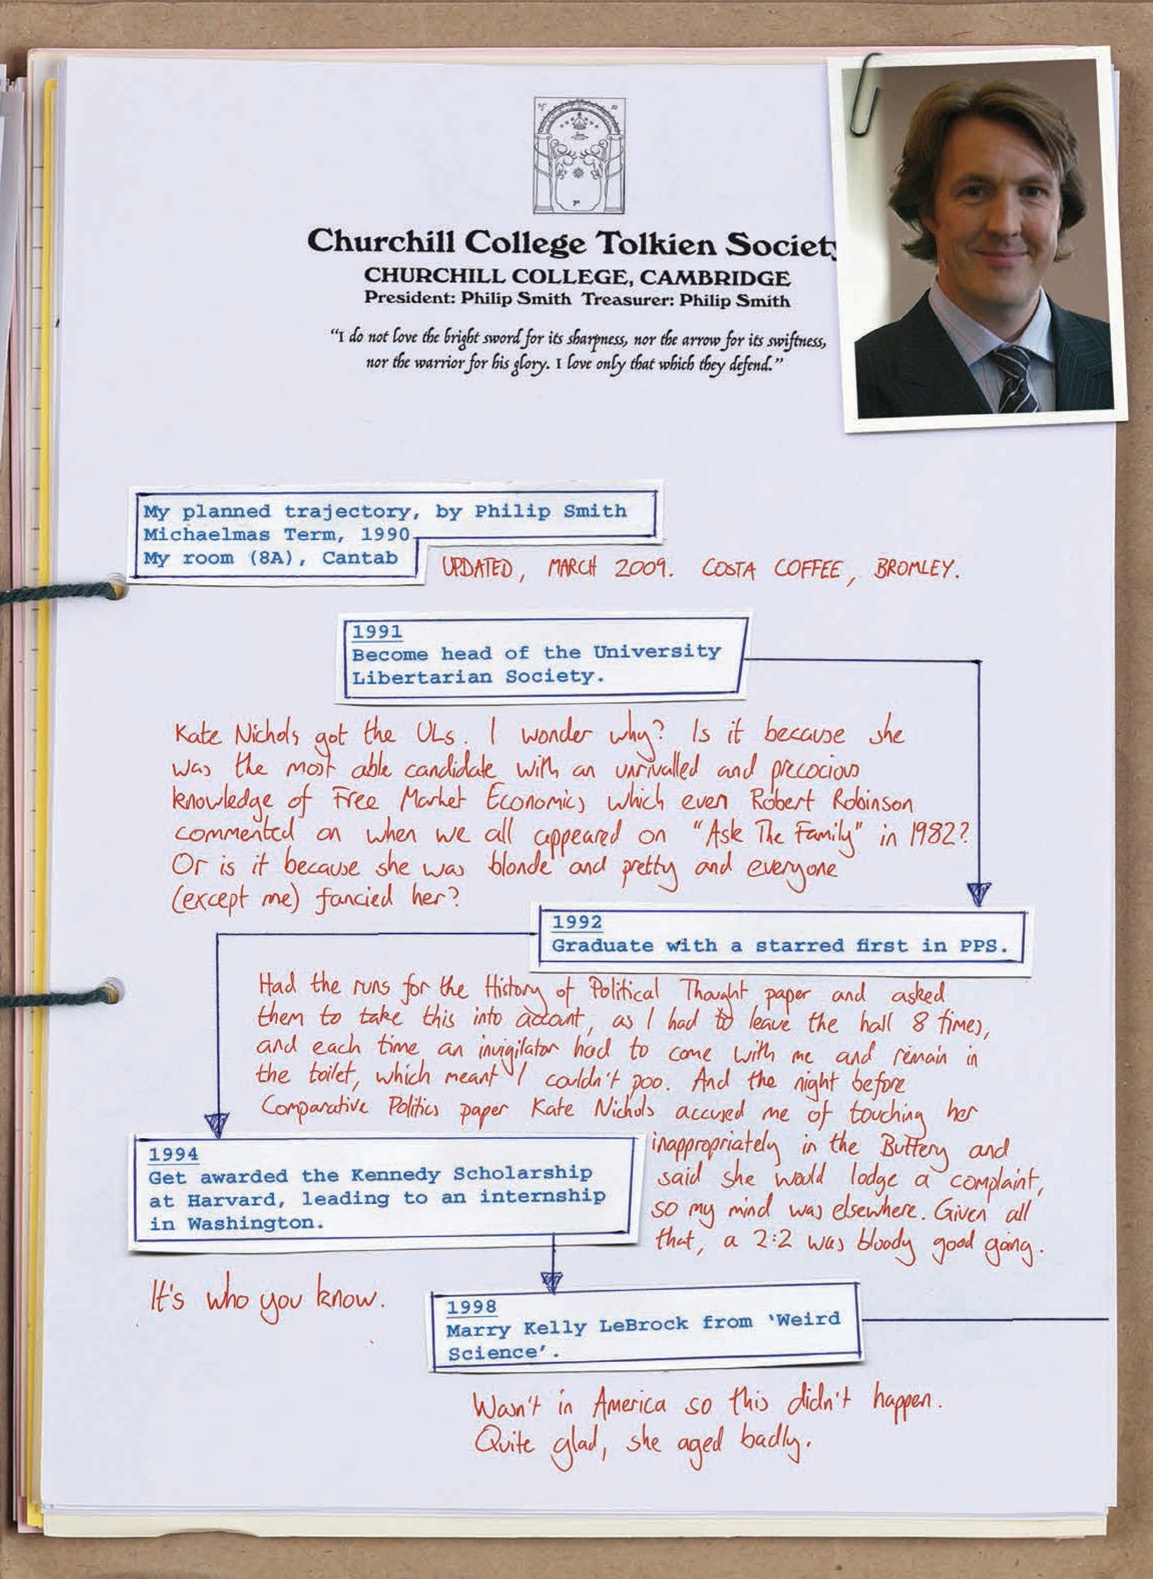 Churchill College Tolkien Society
CHURCHILL COLLEGE, CAMBRIDGE
President: Philip Smith Treasurer: Philip Smith
“I do not love the bright sword for its sharpness, nor the arrow for its swiftness,
nor the warrior for his glory. I love only that which they defend.”
My planned trajectory, by Philip Smith
Michaelmas Term, 1990
My room (8A), Cantab
UPDATED, MARCH 2009. COSTA COFFEE, BROMLEY.
1991
Become head of the University
Libertarian Society.
Kate Nichols got the ULs. I wonder why? Is it because she
was the most able candidate with an unrivalled and precocious
knowledge of Free Market Economics which even Robert Robinson
commented on when we all appeared on "Ask The Family" in 1982?
Or is it because she was blonde and pretty and everyone
(except me) fancied her?
1992
Graduate with a starred first in PPS.
Had the runs for the History of Political Thought paper and asked
them to take this into account, as I had to leave the hall 8 times,
and each time an invigilator had to come with me and remain in
the toilet, which meant I couldn't poo. And the night before
Comparative Politics paper Kate Nichols accused me of touching her
inappropriately in the Buttery and
said she would lodge a complaint,
so my mind was elsewhere. Given all
that, a 2:2 was bloody good going.
1994
Get awarded the Kennedy Scholarship
at Harvard, leading to an internship
in Washington.
It's who you know.
1998
Marry Kelly LeBrock from ‘Weird
Science’.
Wasn't in America so this didn't happen.
Quite glad, she aged badly.